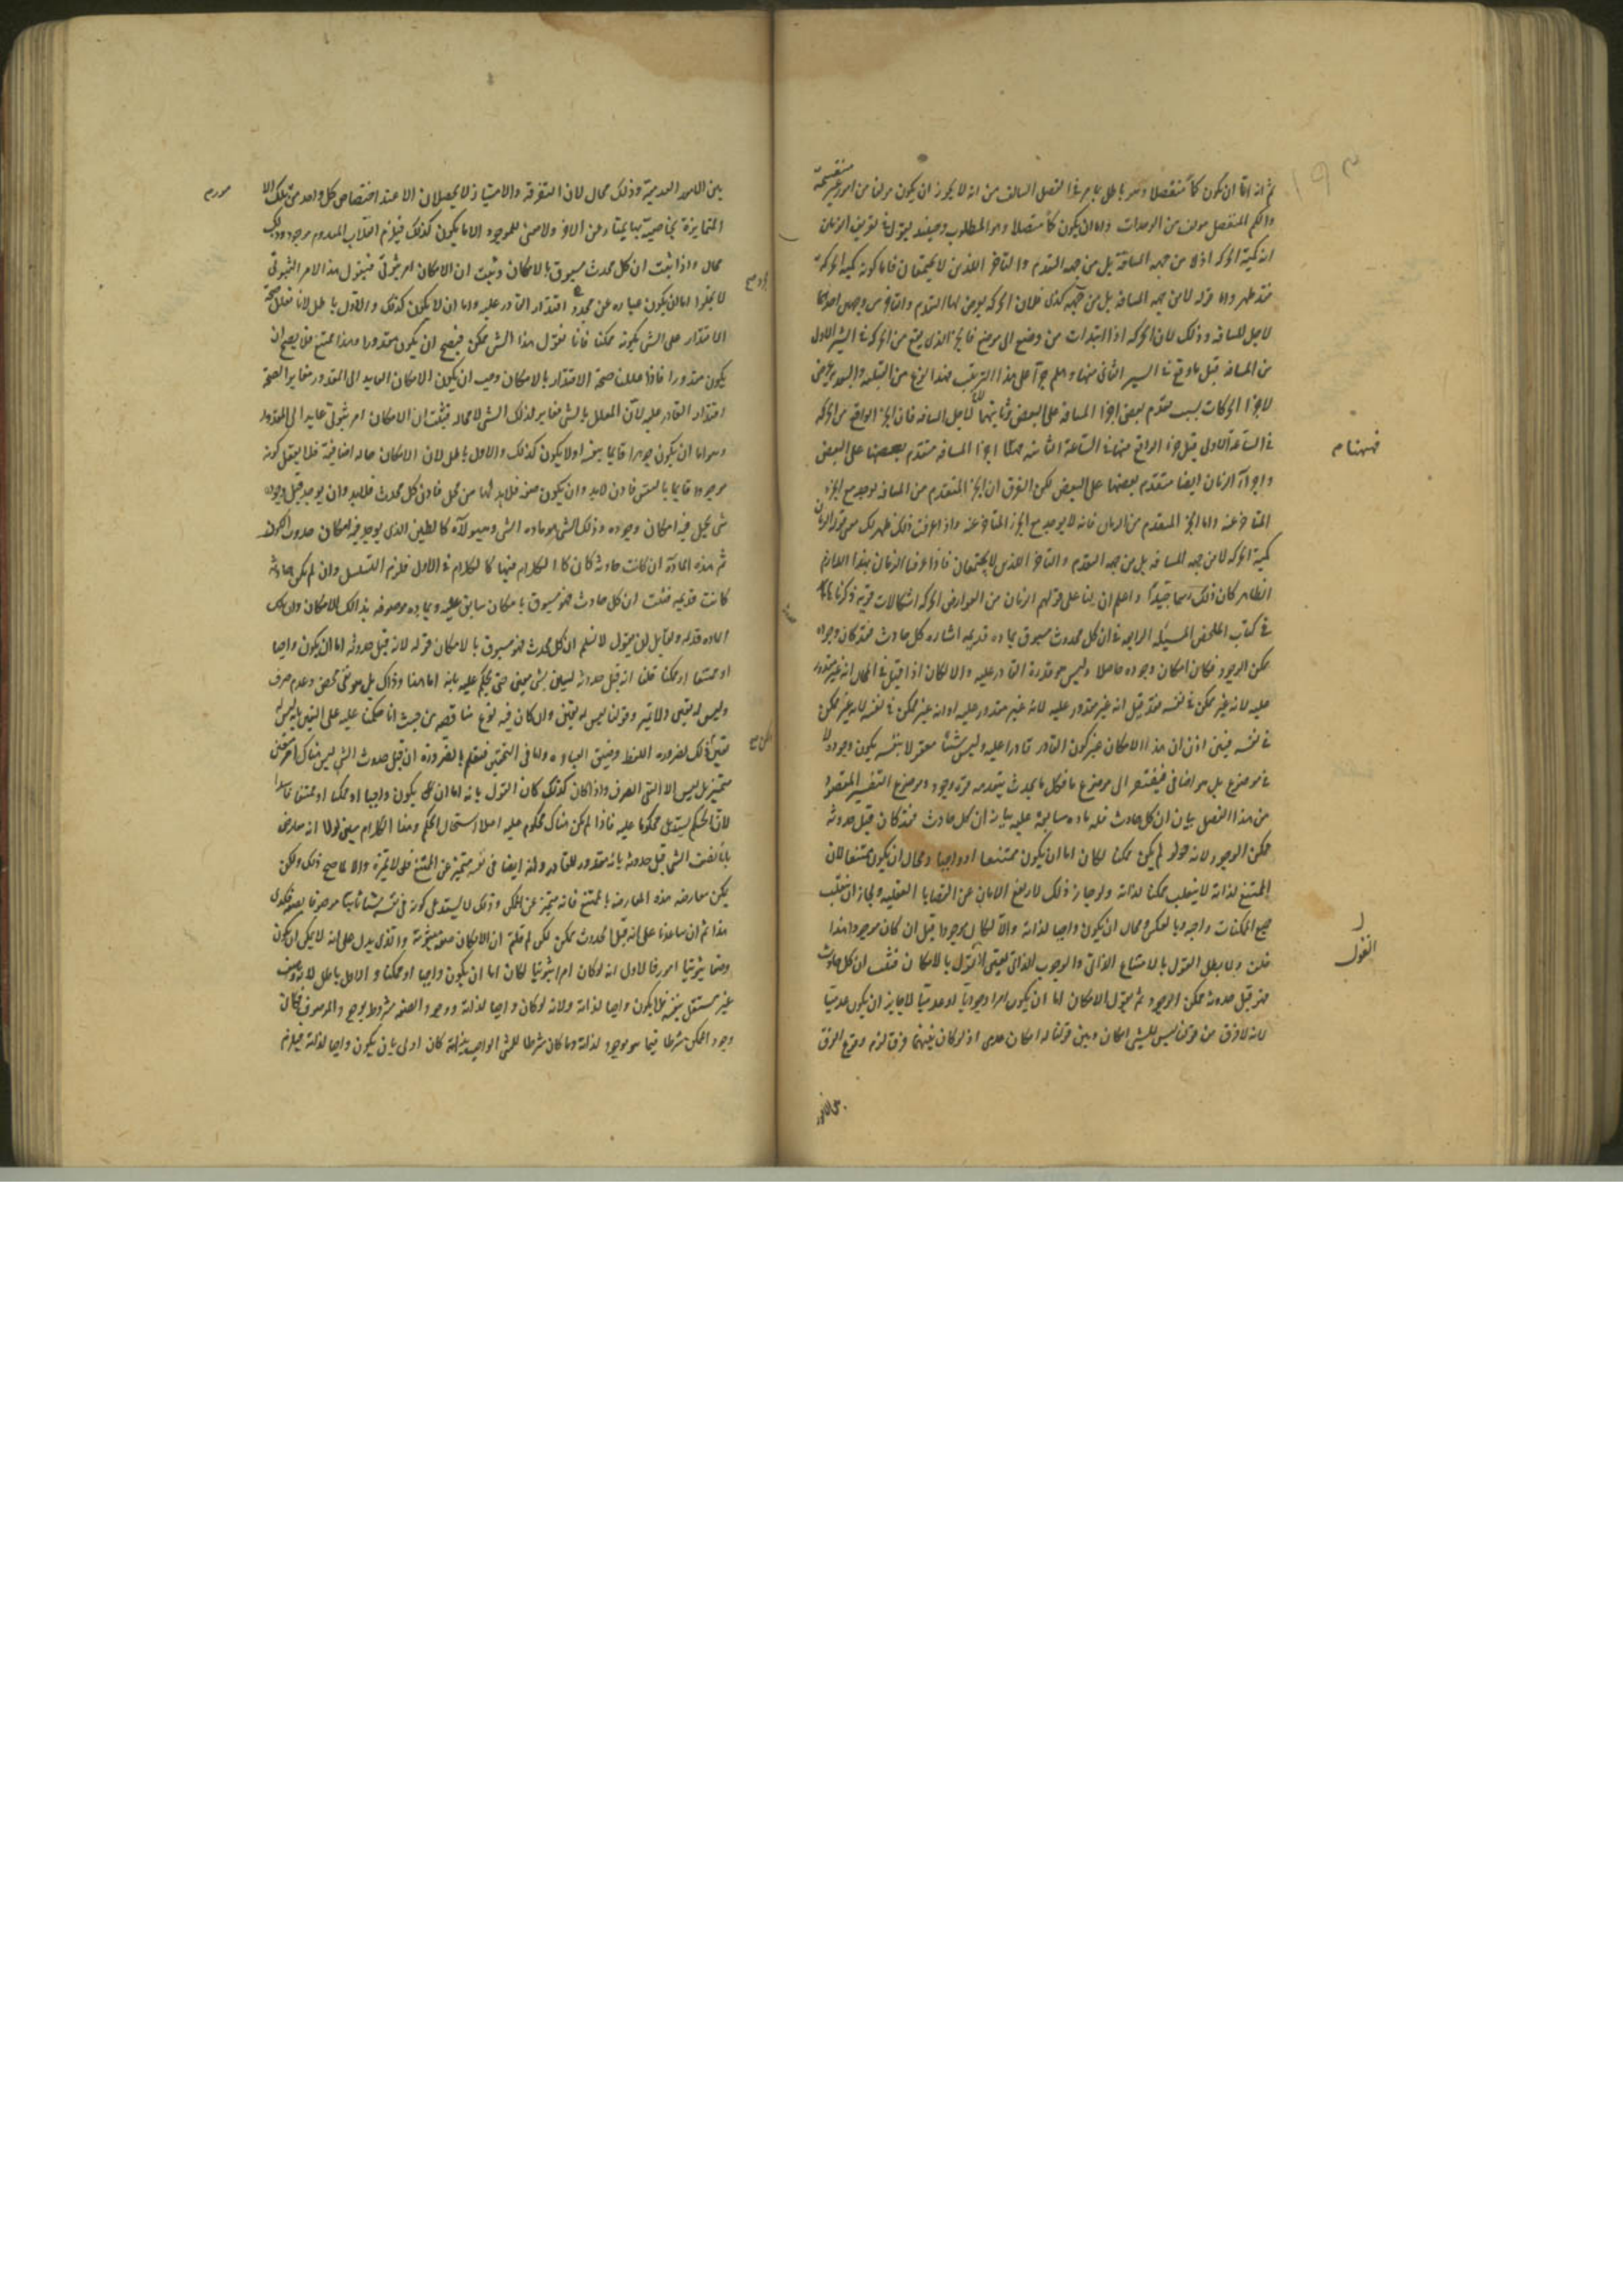 ثم انه اما ان يكون كما منفصلا وهو باطل بما مر في الفصل السالف من انه لا يجوز ان يكون مولفا من امور غير منقسمة
والكم المنفصل مولف من الوحدات واما ان يكون كما متصلا وهو المطلوب وحينئذ يقول في تعريف الزمان
انه كمية الحركة اذ لا من جهة المسافة بل من جهة التقدم والتاخر اللذين لا يجتمعان فاما كونه كمية الحركة
فقد ظهر واما قوله لا من جهة المسافة بل من جهة كذى فلان الحركة يعرض لها التقدم والتاخر من وجهين احدهما
لاجل المسافة وذلك لان الحركة اذا ابتدات من وضع الى موضع فالجزء الذي يقع من الحركة في الشبر الاول
من المسافة قبل ما وقع في الشبر الثاني منها وهلم جرا على هذا الترتيب فهذا النوع من القبلية والبعدية يعرض
لاجزا الحركات بسبب تقدم بعض اجزا المسافة على البعض وثانيهما لا لاجل المسافة فان الجزء الواقع من الحركة
في الساعة الاولى قبل جزء الواقع منها في الساعة الثانية فكما اجزا المسافة متقدم بعضها على البعض
واجزاء الزمان ايضا متقدم بعضها على البعض لكن الفرق ان الجزء المتقدم من المسافة يوجد مع الجزء
المتاخر عنه واما الجزء المتقدم من الزمان فانه لا يوجد مع الجزء المتاخر عنه واذا عرفت ذلك ظهر لك معنى قولنا الزمان
كمية الحركة لا من جهة المسافة بل من جهة التقدم والتاخر اللذين لا يجتمعان فاذا عرفنا الزمان بهذا اللازم
الظاهر كان ذلك رسما جيدا واعلم ان بنا على قولهم الزمان من العوارض الحركة اشكالات قوية ذكرناها
في كتاب الملخص المسئلة الرابعة في ان كل محدث مسبوق بمادة قديمة اشارة كل حادث فقد كان وجوده
ممكن الوجود فكان امكان وجوده حاصلا وليس هو قدرة القادر عليه والا لكان اذا قيل في المحال انه غير مقدور
عليه لانه غير ممكن في نفسه فقد قيل انه غير مقدور عليه لانه غير مقدور عليه او انه غير ممكن في نفسه لانه غير ممكن
في نفسه فبين اذن ان هذا الامكان غير كون القادر قادرا عليه وليس شيئا معقولا بنفسه يكون وجوده لا
في موضوع بل هو اضافي فيفتقر الى موضوع فكل ما يحدث يتقدمه قوة وجود وموضوع التفسير المقصود
من هذا الفصل بيان ان كل حادث فله مادة سابقة عليه بيانه ان كل حادث فقد كان قبل حدوثه
ممكن الوجود لانه لو لم يكن ممكنا لكان اما ان يكون ممتنعا او واجبا ومحال ان يكون ممتنعا لان
الممتنع لذاته لا ينقلب ممكنا لذاته ولو جاز ذلك لارتفع الامان عن القضايا العقلية ولجاز ان ينقلب
جميع الممكنات واجبة وبالعكس ومحال ان يكون واجبا لذاته والا لكان موجودا قبل ان كان موجودا هذا
خلف ولما بطل القول بالامتناع الذاتي والوجوب الذاتي تعين القول بالامكان فثبت ان كل حادث
فهو قبل حدوثه ممكن الوجود ثم يقول الامكان اما ان يكون امرا وجوديا او عدميا لا جايز ان يكون عدميا
لانه لا فرق من قولنا ليس للشي امكان وبين قولنا له امكان عدمي اذ لو كان بينهما فرق لزم وقوع الفرق
فههنا م
القول
بين الامور العدمية وذلك محال لان التفرقة والامتياز لا يحصلان الا عند اختصاص كل واحد من تلك الا
المتمايزة بخاصية بها يمتاز عن الاخر ولا معنى للموجود الا ما يكون كذلك فيلزم انقلاب المعدوم موجودا وذلك
محال واذا ثبت ان كل محدث مسبوق بالامكان وثبت ان الامكان امر ثبوتي فنقول هذا الامر الثبوتي
لا يخلوا اما ان يكون عبارة عن مجرد اقتدار القادر عليه واما ان لا يكون كذلك والاول باطل لانا نعلل صحة
الاقتدار على الشي بكونه ممكنا فانا نقول هذا الشي ممكن فيصح ان يكون مقدورا وهذا ممتنع فلا يصح ان
يكون مقدورا فاذا عللنا صحة الاقتدار بالامكان وجب ان يكون الامكان العايد الى المقدور مغايرا لصحة
اقتدار القادر عليه لان المعلل بالشي مغاير لذلك الشي لا محالة فثبت ان الامكان امر ثبوتي عايد الى المقدور
وهو اما ان يكون جوهرا قايما بنفسه او لا يكون كذلك والاول باطل لان الامكان حاله اضافية فلا يعقل كونه
موجودا قايما بالنفس فاذن لابد وان يكون صفة فلابد لها من محل فاذن كل محدث فلابد وان يوجد قبل وجوده
شي يحل فيه امكان وجوده وذلك الشي هو مادة الشي وهيولاه كالطين الذي يوجد فيه امكان حدوث الكوز
ثم هذه المادة ان كانت حادثة كان الكلام فيها كالكلام في الاول فلزم التسلسل وان لم يكن حادثة
كانت قديمة فثبت ان كل حادث فهو مسبوق بامكان سابق عليه وبمادة موصوفة بذلك الامكان وان تلك
المادة قديمة ولقايل ان يقول لا نسلم ان كل محدث فهو مسبوق بالامكان قوله لانه قبل حدوثه اما ان يكون واجبا
او ممتنعا او ممكنا قلنا انه قبل حدوثه ليس بشي معين حتى يحكم عليه بانه اما هذا وذاك بل هو نفي محض وعدم صرف
وليس له تعين ولا تميز وقولنا ليس له تحقق وان كان فيه نوع مناقضه من حيث انا حكمنا عليه على التعين بانه ليس له
تعين فذلك لضرورة اللفظ وضيق العبارة واما في التحقيق فنعلم بالضرورة ان قبل حدوث الشي ليس هناك امر متعين
متميز بل ليس الا النفي الصرف واذا كان كذلك كان القول بانه اما ان يكون واجبا او ممكنا او ممتنعا فاسدا
لان الحكم يستدعي محكوما عليه فاذا لم يكن هناك محكوم عليه اصلا استحال الحكم وهذا الكلام مبين لولا انه معارض
بانا نصف الشي قبل حدوثه بانه مقدور للقادر وانه ايضا في نفسه متميز عن الممتنع فلولا تميزه والا لما صح ذلك ولكن
يمكن معارضه هذه المعارضة بالممتنع فانه متميز عن الممكن وذلك لا يستدعي كونه في نفسه شيئا ثابتا موصوفا بصفة فكذى
هذا ثم ان ساعدنا على انه قبل الحدوث ممكن لكن لم قلتم ان الامكان صفة ثبوتية والذي يدل على انه لا يمكن ان يكون
وصفا ثبوتيا امور فالاول انه لو كان امرا ثبوتيا لكان اما ان يكون واجبا او ممكنا والاول باطل لانه وصف
غير مستقل بنفسه فلا يكون واجبا لذاته ولانه لو كان واجبا لذاته ووجود الصفة مشروط بوجود الموصوف فكان
وجود الممكن شرطا فيما هو موجود لذاته وما كان شرطا للشي الواجب لذاته كان اولى بان يكون واجبا لذاته فيلزم